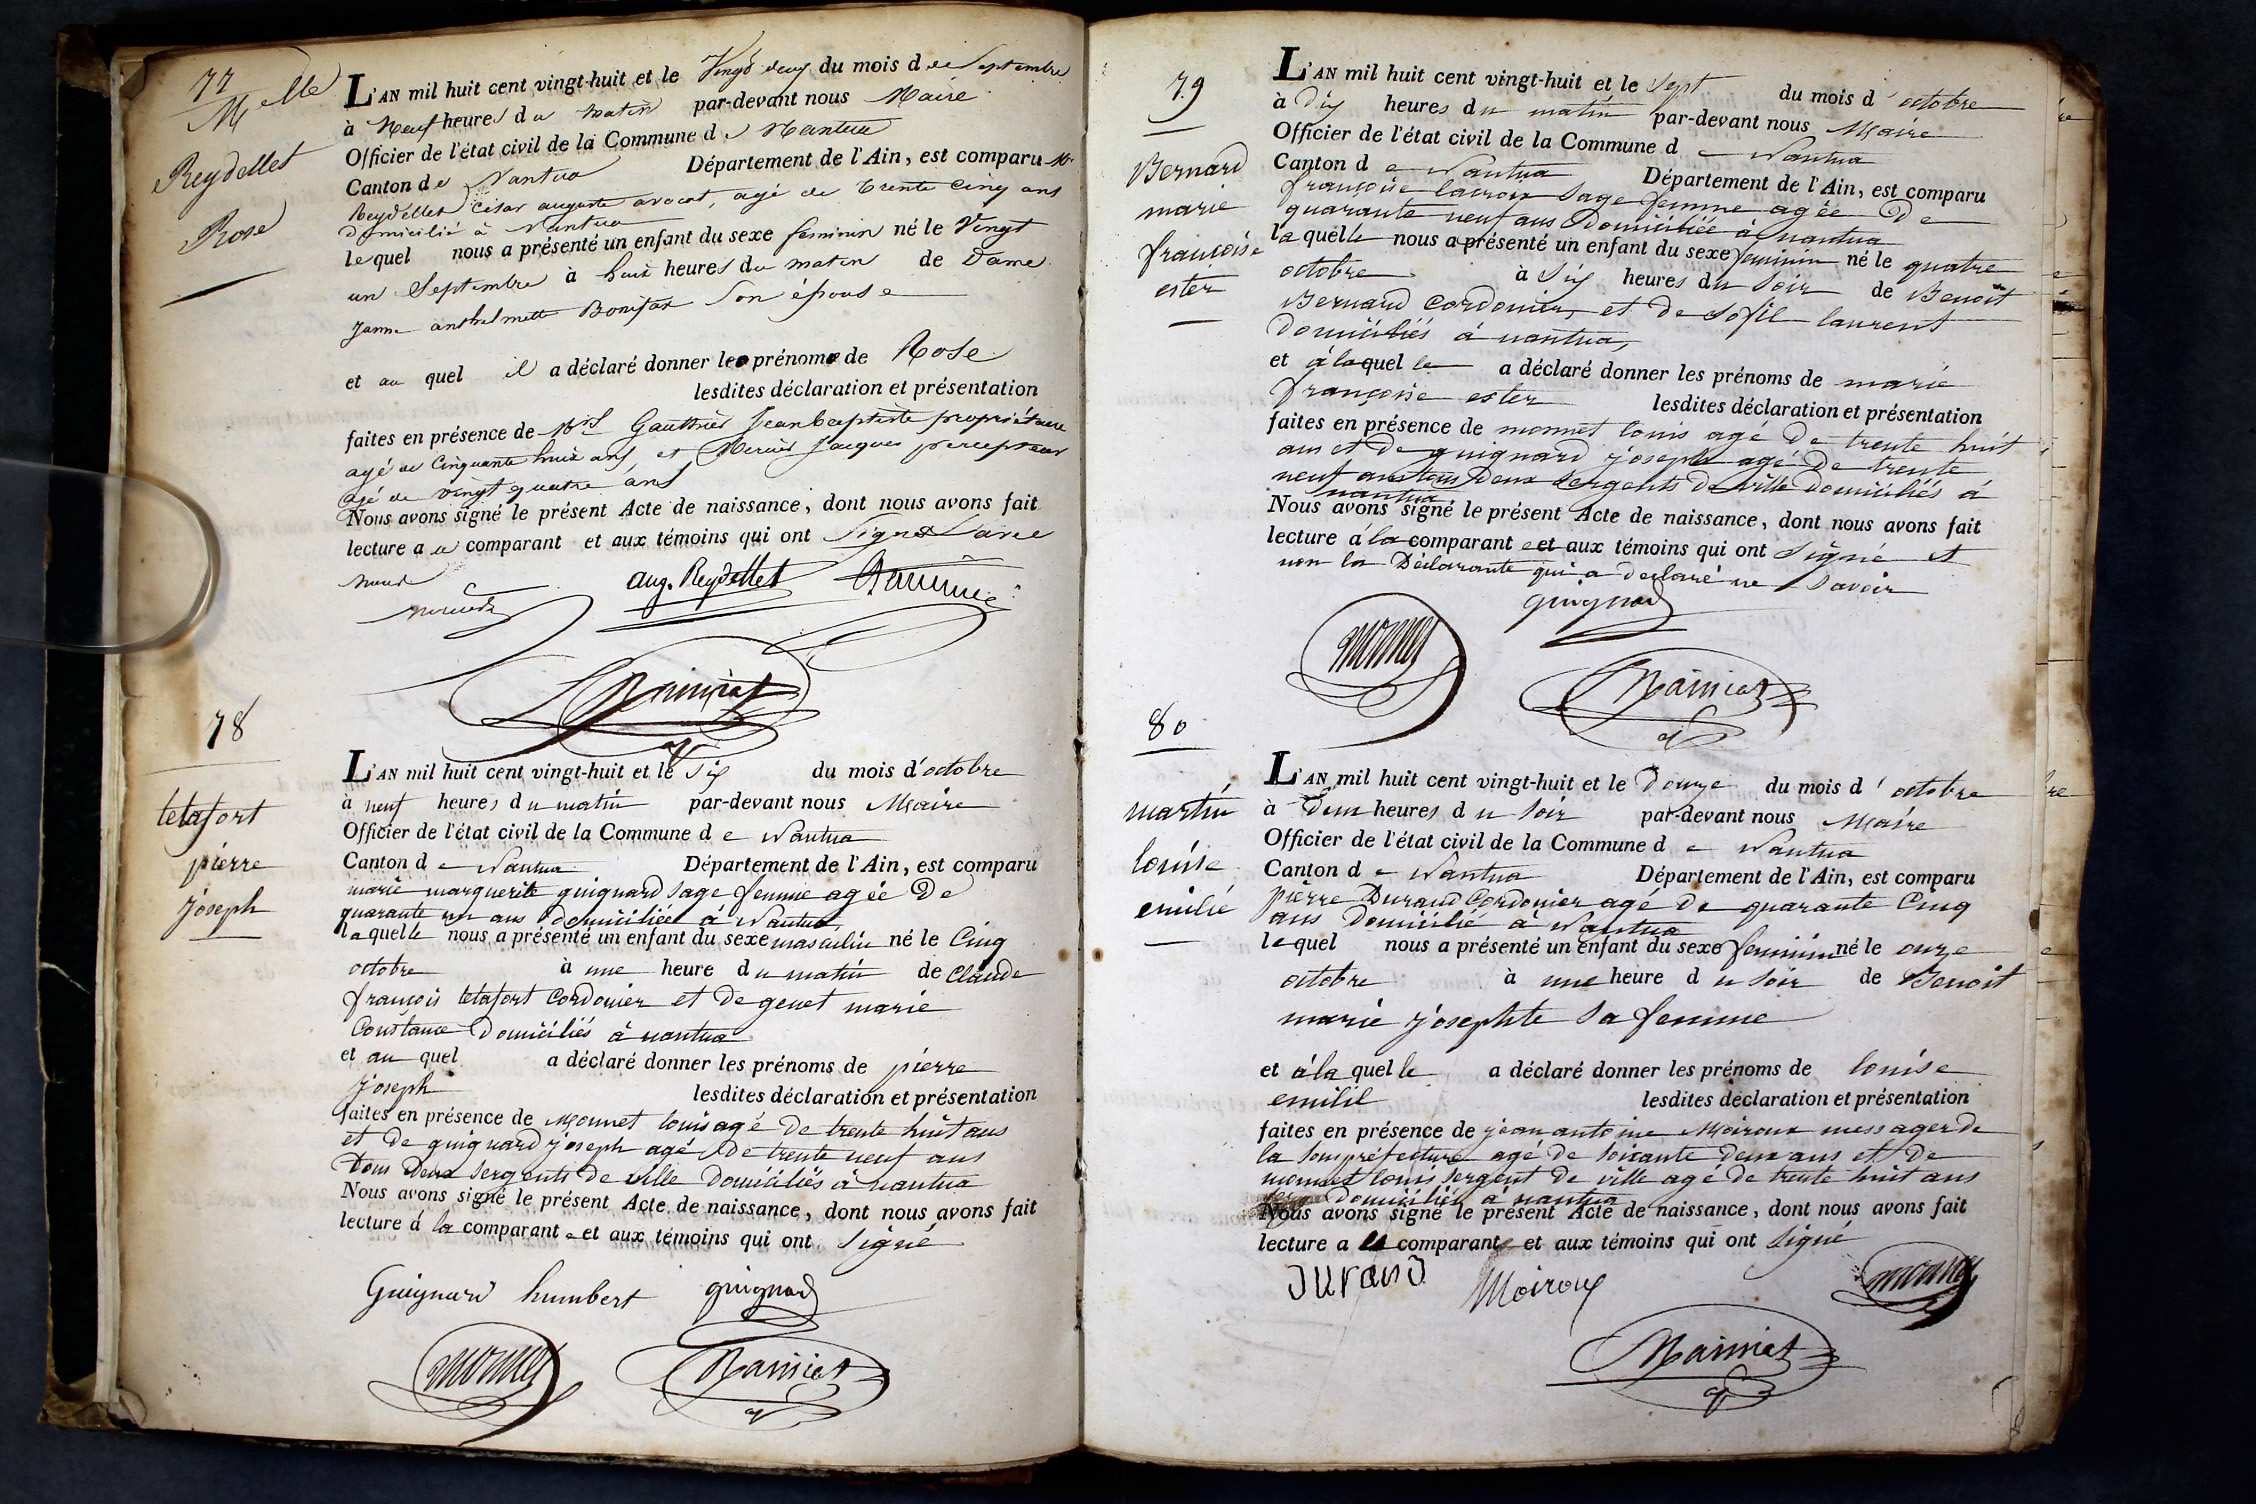 77
Melle
Reydellet
Rose
L'AN mil huit cent vingt-huit et le Vingt deux du mois de Septembre
à Neuf heures du matin par-devant nous Maire
Officier de l'état civil de la Commune de Nantua
Canton de Nantua Département de l'Ain, est comparu Mr
Reydellet César auguste avocat, agé de trente cinq ans
domicilié à Nantua
lequel nous a présenté un enfant du sexe feminin né le Vingt
un Septembre à huit heures du matin de Dame
Janne anthelmette Bonifax Son épouse
et au quel il a déclaré donner le prénom de Rose
lesdites déclaration et présentation
faites en présence de Mrs Gauthier Jean baptiste propriétaire
agé de Cinquante huit ans et Mercier Jacques percepteur
agé de vingt quatre ans
Nous avons signé le présent Acte de naissance, dont nous avons fait
lecture au comparant et aux témoins qui ont Signé avec
nous
aug. Reydellet
78
tetafort
pierre
joseph
L'AN mil huit cent vingt-huit et le Six du mois d'octobre
à neuf heures du matin par-devant nous Maire
Officier de l'état civil de la Commune de Nantua
Canton de Nantua Département de l'Ain, est comparu
marie marguerite guignard sage femme agée De
quarante un ans domiciliée à Nantua
laquelle nous a présenté un enfant du sexe masculin né le Cinq
octobre à une heure du matin de Claude
françois tetafort Cordonier et De genet marie
Constance Domiciliés à nantua
et au quel a déclaré donner les prénoms de pierre
joseph lesdites déclaration et présentation
faites en présence de Monnet louis agé De trente huit ans
et De guignard joseph agé De trente neuf ans
tous Deux Sergents De ville Domiciliés à nantua
Nous avons signé le présent Acte de naissance, dont nous avons fait
lecture à la comparante et aux témoins qui ont Signé
Guignard humbert guignard
monnet
79
Bernard
marie
francoise
ester
L'AN mil huit cent vingt-huit et le Sept du mois d'octobre
à Dix heures du matin par-devant nous Maire
Officier de l'état civil de la Commune de Nantua
Canton de Nantua Département de l'Ain, est comparu
françoise lacroix Sage femme agée De
quarante neuf ans Domiciliée à nantua
laquelle nous a présenté un enfant du sexe feminin né le quatre
octobre à Six heures du Soir de Benoit
Bernard Cordonier, et De Sofil laurent
Domiciliés à nantua,
et à laquelle a déclaré donner les prénoms de marie
françoise ester lesdites déclaration et présentation
faites en présence de monnet louis agé De trente huit
ans et De guignard joseph agé De trente
neuf ans tous Deux Sergents De ville Domiciliés à
nantua
Nous avons signé le présent Acte de naissance, dont nous avons fait
lecture à la comparante et aux témoins qui ont Signé et
non la Déclarante qui a declaré ne Savoir
guignard
monnet
80
martin
louise
emilie
L'AN mil huit cent vingt-huit et le Douze du mois d'octobre
à Deux heures du Soir par-devant nous Maire
Officier de l'état civil de la Commune de Nantua
Canton de Nantua Département de l'Ain, est comparu
pierre Durand Cordonier agé De quarante Cinq
ans Domicilié à Nantua
lequel nous a présenté un enfant du sexe feminin né le onze
octobre à une heure du Soir de Benoit
marie josephte Sa femme
et à laquelle a déclaré donner les prénoms de louise
emilie lesdites déclaration et présentation
faites en présence de jean antoine Moiroux messager De
la Souspréfecture agé De Soixante Deux ans et De
monnet louis Sergent De ville agé De trente huit ans
Domiciliés à nantua
Nous avons signé le présent Acte de naissance, dont nous avons fait
lecture a comparant et aux témoins qui ont Signé
Durand Moiroux monnet